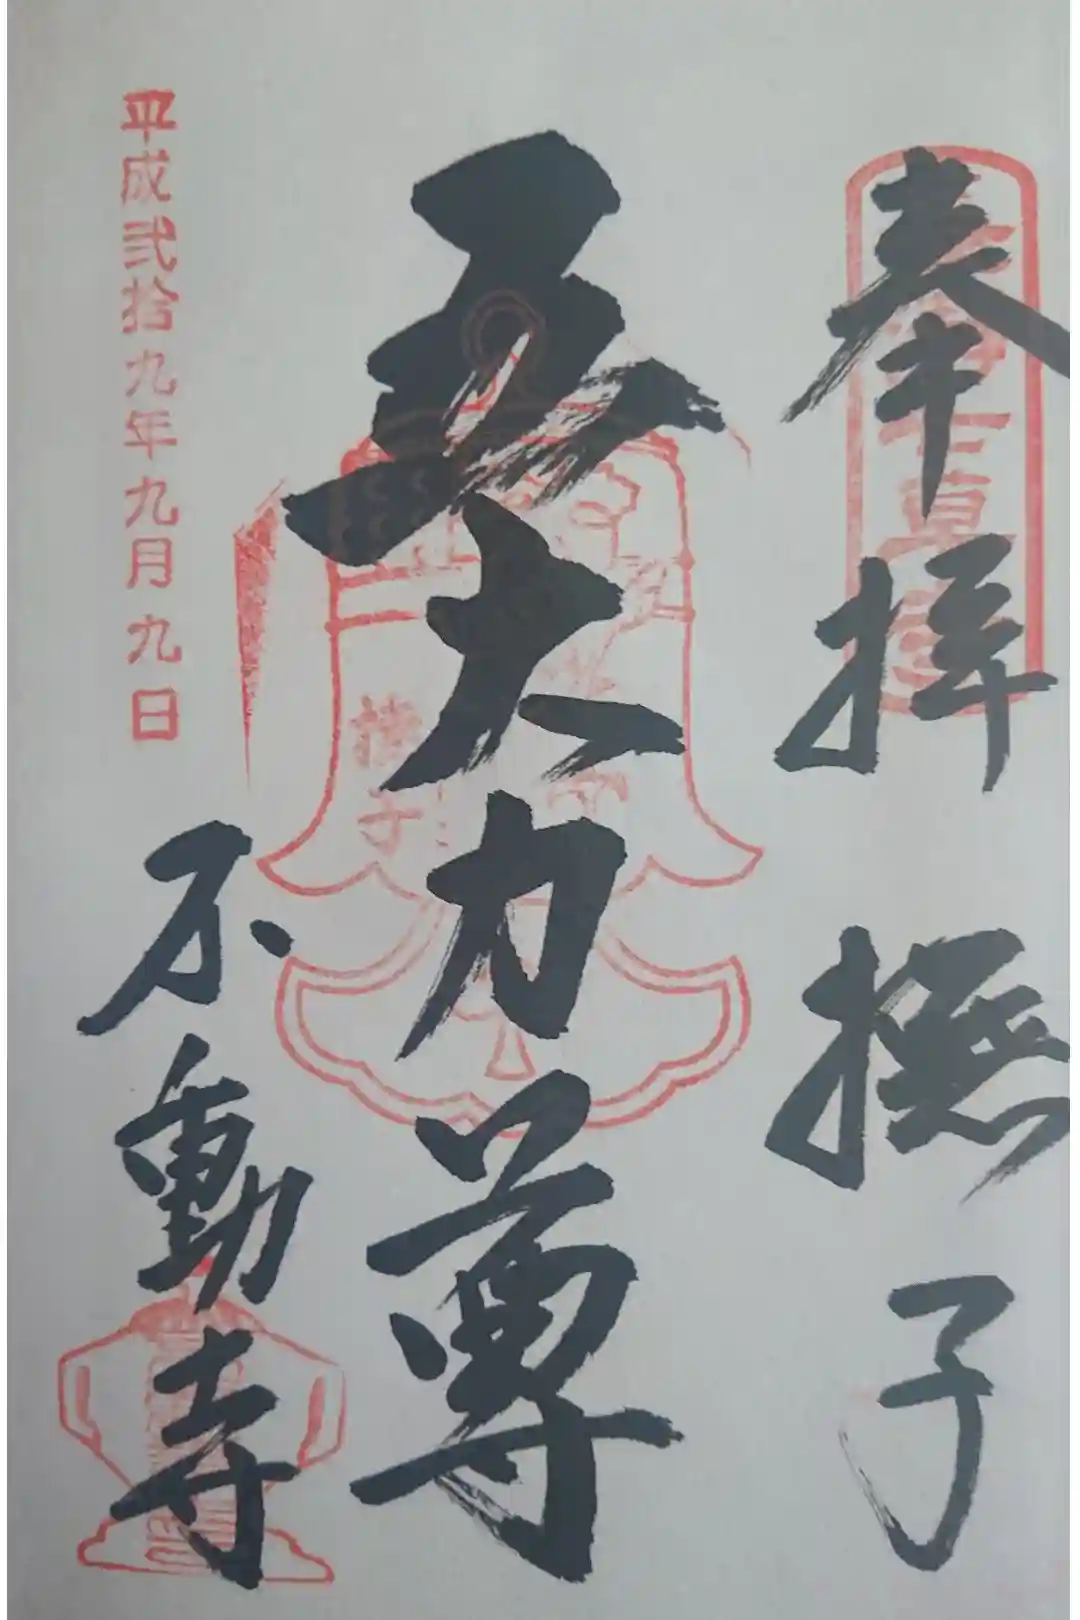 奉拝 撫子
五大力尊
不動寺
平成弐拾九年九月九日
撫子